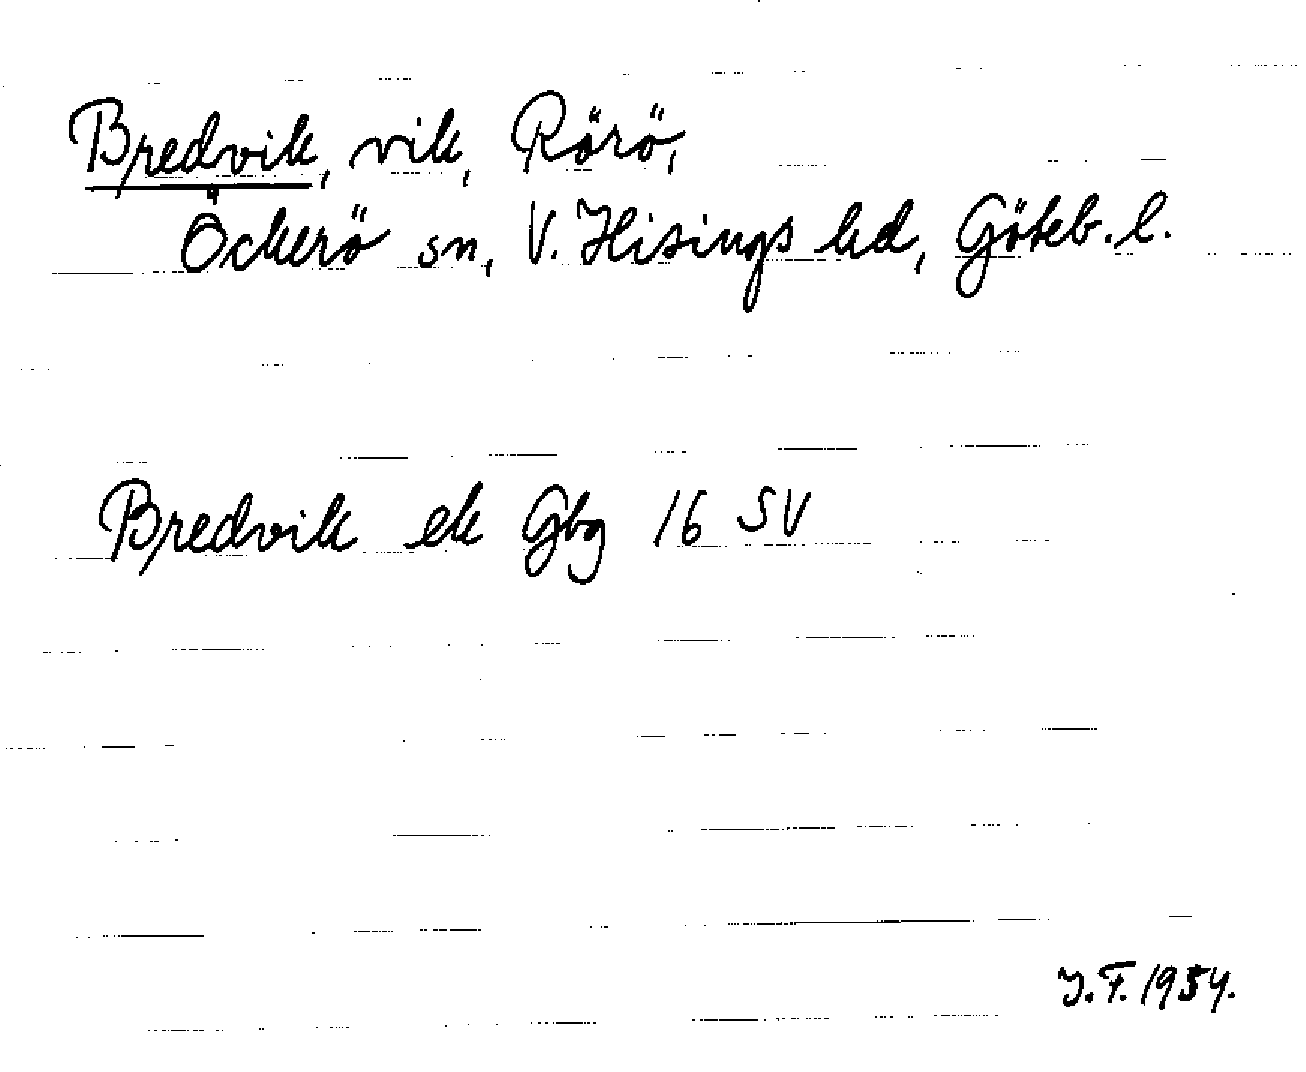 Bredvik, vik, Rörö,
Öckerö sn, V. Hisings hd, Göteb. l.
Bredvik ek Gbg 16 SV
J.F. 1954.